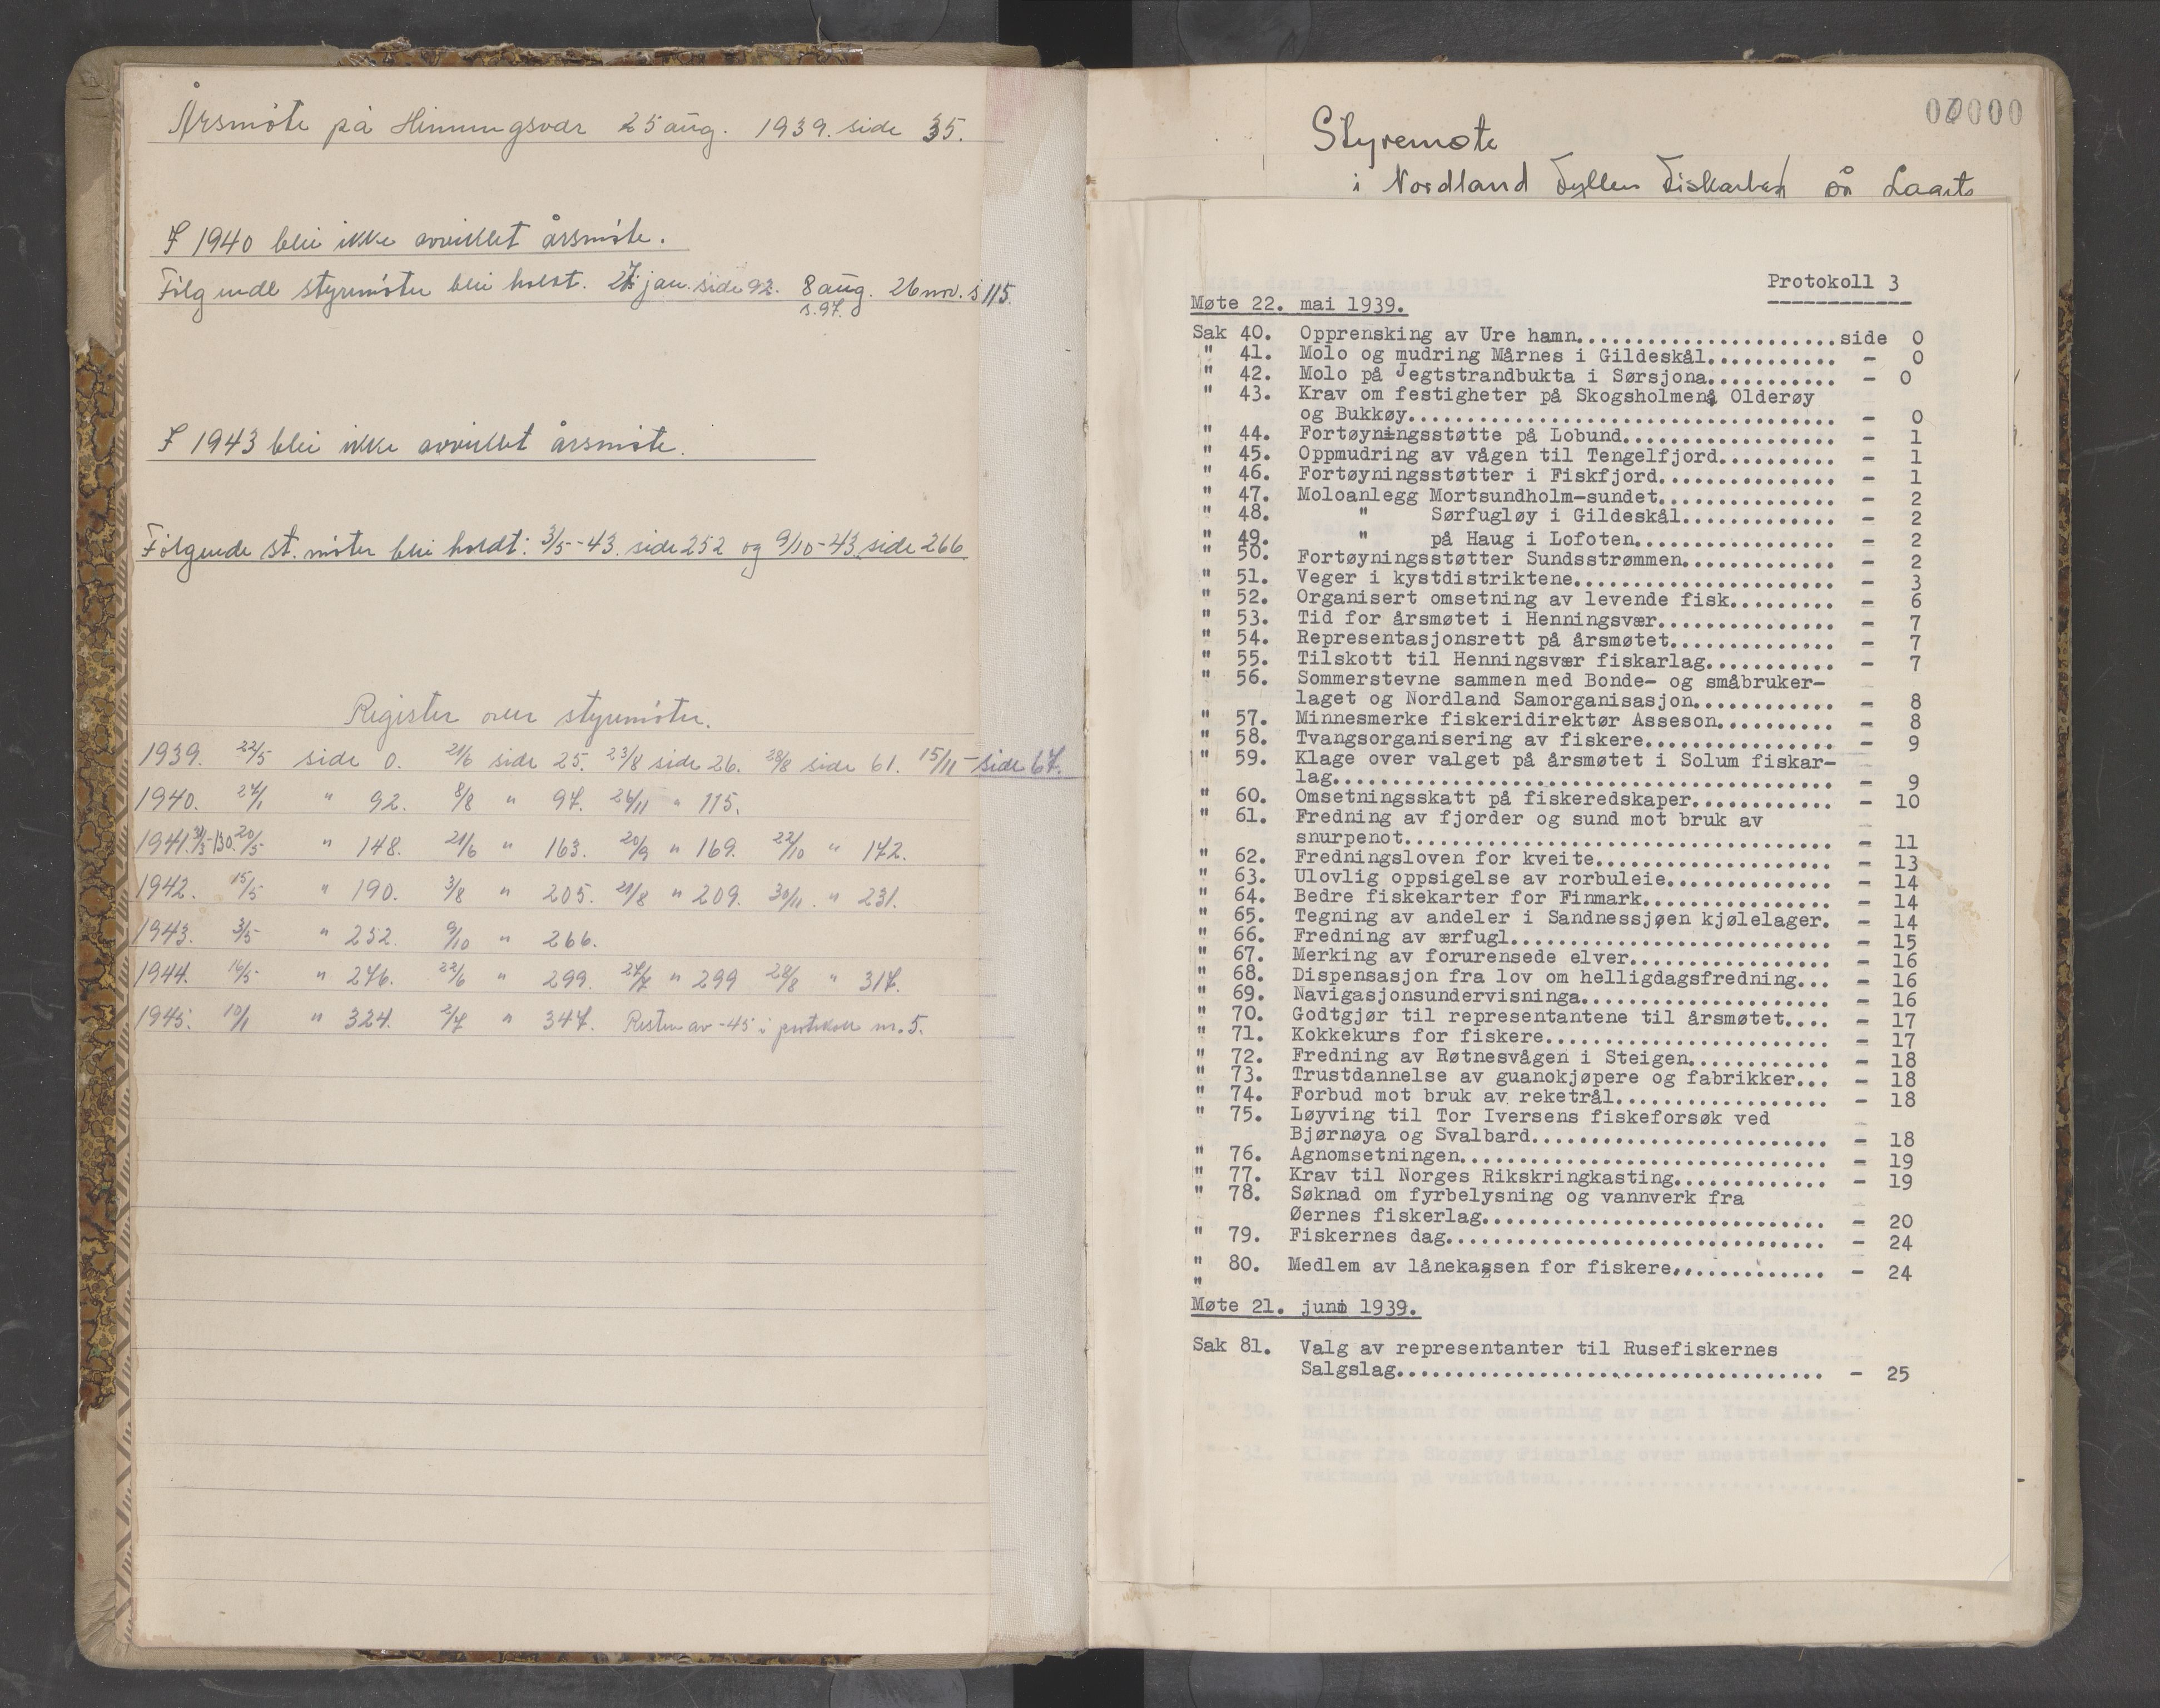 Årsmöte på Henningsvær 25 aug. 1939. side 35.
I 1940 blei ikke avviklet årsmöte.
Fölgende styremöter blei holdt. 27. jan. side 92. 8 aug. 26 nov. s 115.
s. 97.
I 1943 blei ikke avviklet årsmöte.
Fölgende st. möter blei holdt: 3/5-43. side 252 og 9/10-43 side 266
Register over styremöter.
1939. 22/5 side 0. 21/6 side 25. 23/8 side 26. 28/8 side 61. 15/11 - side 67.
1940. 27/1 " 92. 8/8 " 97. 26/11 " 115.
1941. 31/3-130. 20/5 " 148. 21/6 " 163. 20/9 " 169. 22/10 " 172.
1942. 15/5 " 190. 3/8 " 205. 21/8 " 209. 30/11 " 231.
1943. 3/5 " 252. 9/10 " 266.
1944. 16/5 " 276. 22/6 " 299. 27/7 " 299 28/8 " 317.
1945. 10/1 " 324. 2/7 " 347. Resten av -45 i protokoll nr. 5.
00000
Styremøte
i Nordland Fylkes Fiskarlag
Protokoll 3
Møte 22. mai 1939.
Sak 40. Opprensking av Ure hamn......................side 0
" 41. Molo og mudring Mårnes i Gildeskål........... - 0
" 42. Molo på Jegtstrandbukta i Sørsjona........... - 0
" 43. Krav om festigheter på Skogsholmen, Olderøy
og Bukkøy.................................... - 0
" 44. Fortøyningsstøtte på Lobund.................. - 1
" 45. Oppmudring av vågen til Tengelfjord.......... - 1
" 46. Fortøyningsstøtter i Fiskfjord............... - 1
" 47. Moloanlegg Mortsundholm-sundet............... - 2
" 48. " Sørfugløy i Gildeskål............. - 2
" 49. " på Haug i Lofoten................. - 2
" 50. Fortøyningsstøtter Sundsstrømmen............. - 2
" 51. Veger i kystdistriktene...................... - 3
" 52. Organisert omsetning av levende fisk......... - 6
" 53. Tid for årsmøtet i Henningsvær............... - 7
" 54. Representasjonsrett på årsmøtet.............. - 7
" 55. Tilskott til Henningsvær fiskarlag........... - 7
" 56. Sommerstevne sammen med Bonde- og småbruker-
laget og Nordland Samorganisasjon............ - 8
" 57. Minnesmerke fiskeridirektør Asseson.......... - 8
" 58. Tvangsorganisering av fiskere................ - 9
" 59. Klage over valget på årsmøtet i Solum fiskar-
lag.......................................... - 9
" 60. Omsetningsskatt på fiskeredskaper............ - 10
" 61. Fredning av fjorder og sund mot bruk av
snurpenot.................................... - 11
" 62. Fredningsloven for kveite.................... - 13
" 63. Ulovlig oppsigelse av rorbuleie.............. - 14
" 64. Bedre fiskekarter for Finmark................ - 14
" 65. Tegning av andeler i Sandnessjøen kjølelager. - 14
" 66. Fredning av ærfugl........................... - 15
" 67. Merking av forurensede elver................. - 16
" 68. Dispensasjon fra lov om helligdagsfredning... - 16
" 69. Navigasjonsundervisninga..................... - 16
" 70. Godtgjør til representantene til årsmøtet.... - 17
" 71. Kokkekurs for fiskere........................ - 17
" 72. Fredning av Røtnesvågen i Steigen............ - 18
" 73. Trustdannelse av guanokjøpere og fabrikker... - 18
" 74. Forbud mot bruk av reketrål.................. - 18
" 75. Løyving til Tor Iversens fiskeforsøk ved
Bjørnøya og Svalbard......................... - 18
" 76. Agnomsetningen............................... - 19
" 77. Krav til Norges Rikskringkasting............. - 19
" 78. Søknad om fyrbelysning og vannverk fra
Øernes fiskerlag............................. - 20
" 79. Fiskernes dag................................ - 24
" 80. Medlem av lånekassen for fiskere............. - 24
"
Møte 21. juni 1939.
Sak 81. Valg av representanter til Rusefiskernes
Salgslag.................................... - 25